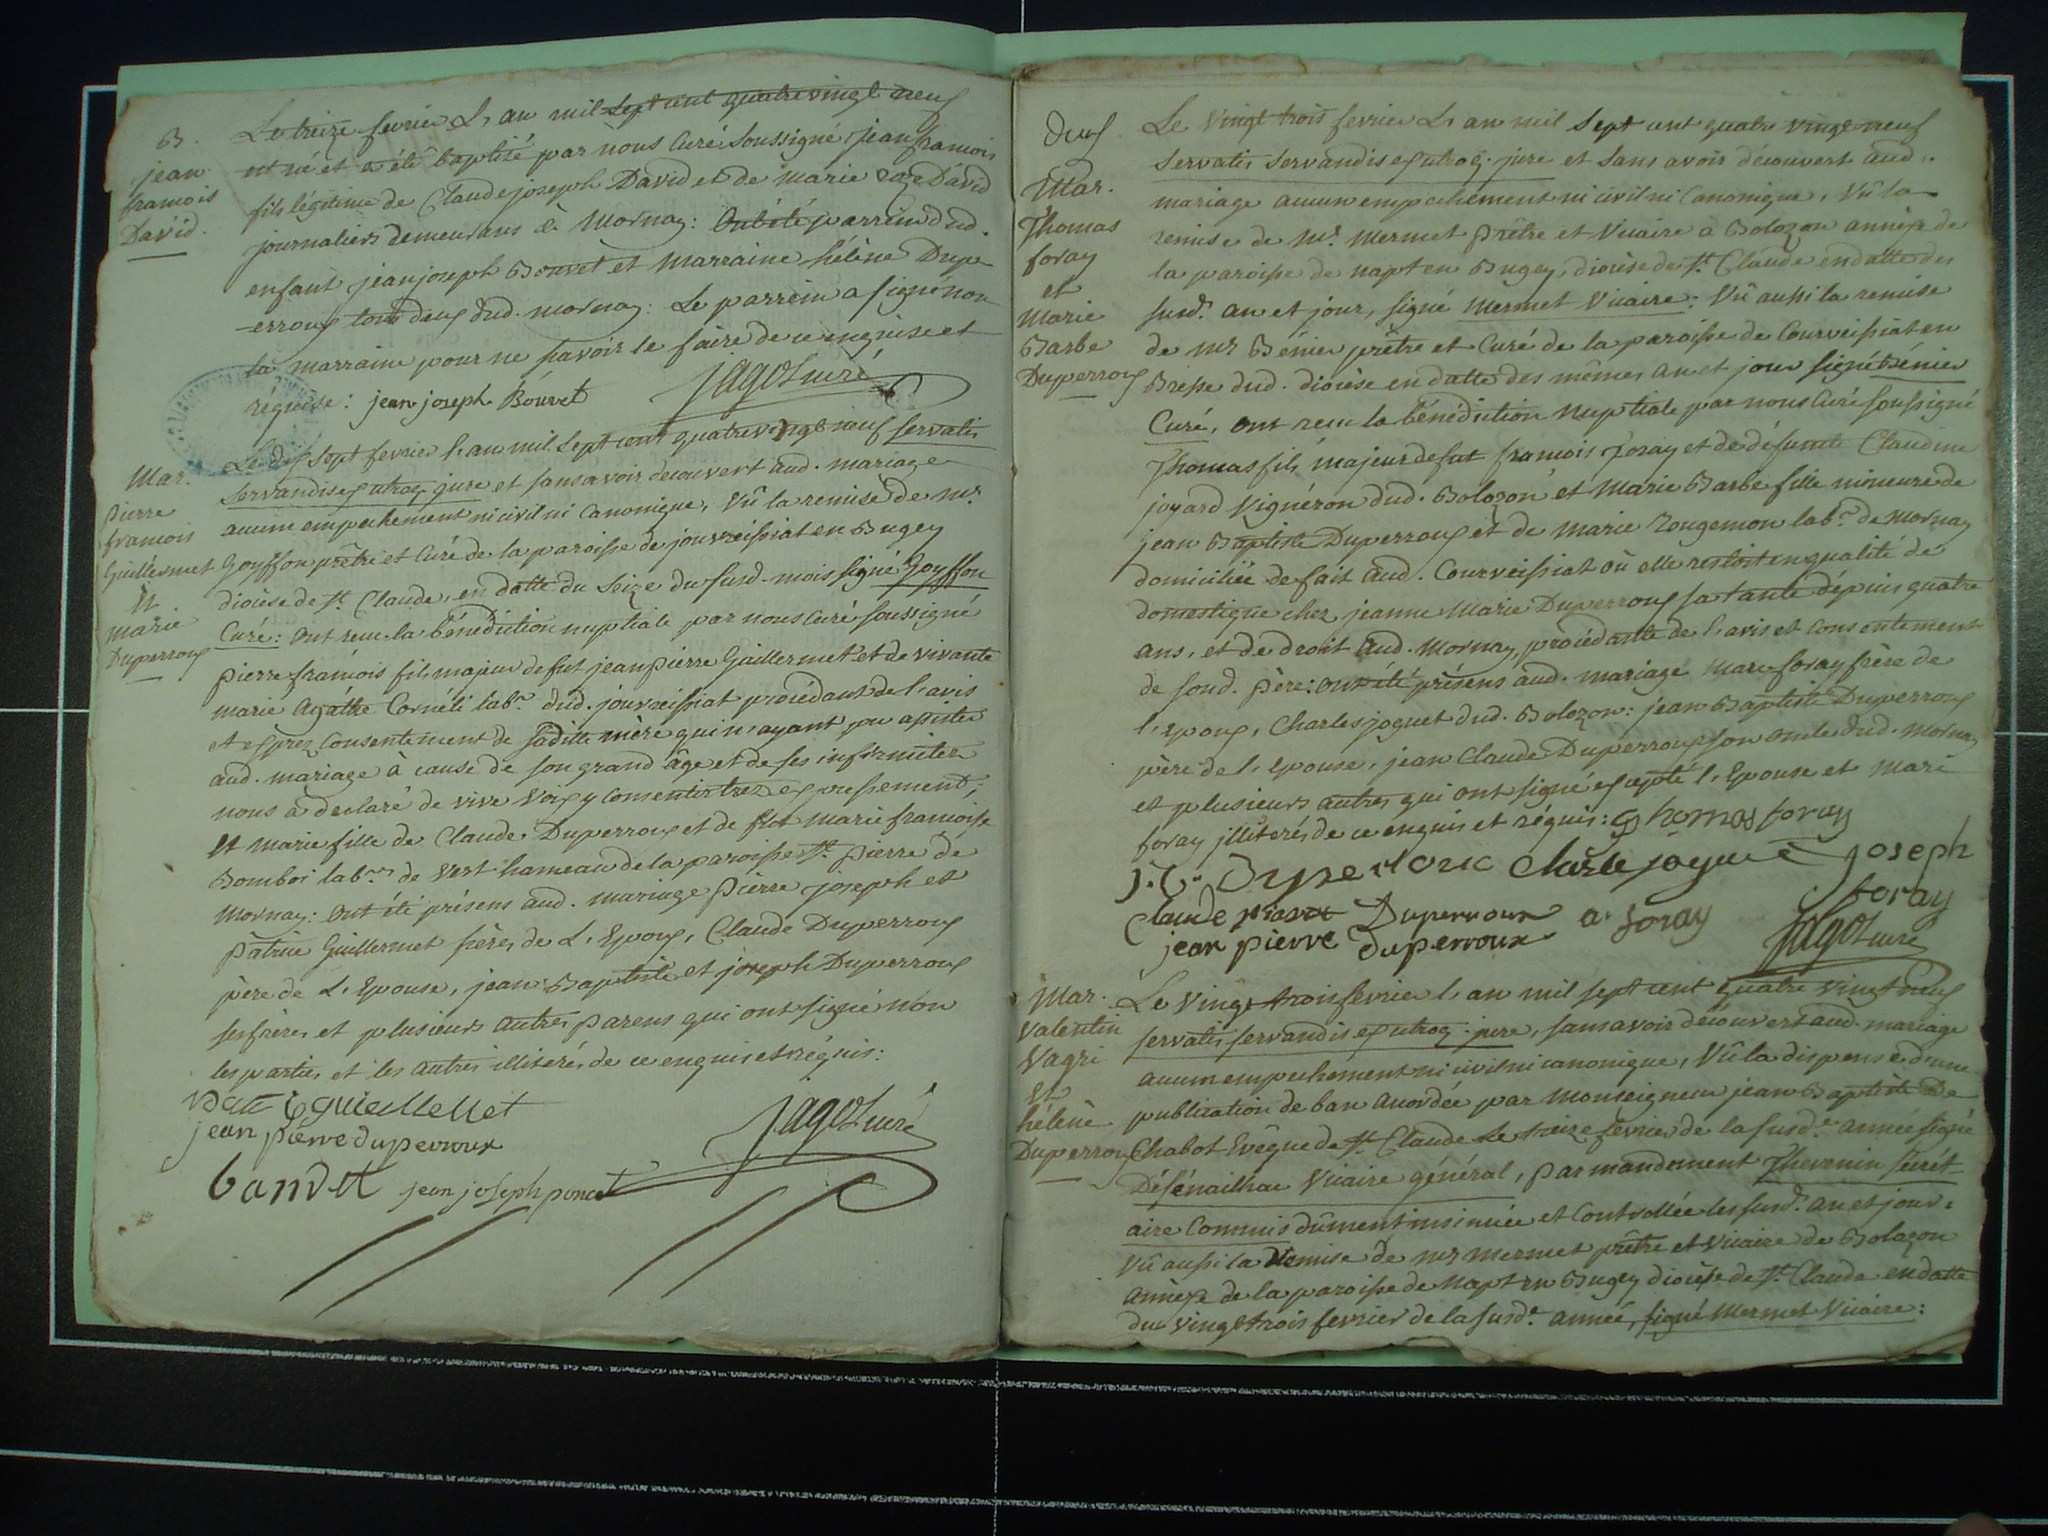 B.
jean
francois
David.
Le treize fevrier L'an mil sept cent quatre vingt neuf
est né et a été baptisé par nous Curé soussigné, jean francois
fils légitime de Claude joseph David et de marie David
journaliers demeurans à Mornay: Ont été parrein dud.
enfant jean joseph Bouvet et Marraine hélène Dupe
-erroux tous deux dud. mornay: Le parrein a signé non
la marraine pour ne savoir le faire de ce enquise et
réquise: jean joseph Bouvet
jagot curé
Mar.
pierre
francois
Guillermet
et
marie
Duperroux
Le dix sept fevrier l'an mil sept cent quatre vingt neuf servatis
servandis ex utroq. jure et sans avoir découvert aud. mariage
aucun empechement ni civil ni Canonique, Vû la remise de mr.
Goyffon prêtre et Curé de la paroisse de jouvreissiat en Bugey
diocèse de St. Claude, en datte du seize du susd. mois signé Goyffon
Curé: Ont recu la bénédiction nuptiale par nous Curé soussigné
pierre francois fils majeur de fut jean pierre Guillermet et de vivante
marie Agathe Cornéli labr. dud. jouvreissiat procédant de l'avis
et exprez Consentement de sa ditte mère qui n'ayant pu assister
aud. mariage à cause de son grand âge et de ses infirmités
nous a declaré de vive Voix y consentir trez expressement;
Et Marie fille de Claude Duperroux et de fut Marie francoise
Bomboi labrs. de Vert hameau de la paroisse St. pierre de
Mornay: Ont été présens aud. mariage Pierre joseph et
Patrice Guillermet frères de L'Epoux, Claude Duperroux
père de L'Epouse, jean Baptiste et joseph Duperroux
ses frères et plusieurs autres parens qui ont signé Non
les parties et les autres illitérés de ce enquis et réquis:
guillermet
jean pierre duperroux
jagot curé
bandet jean joseph poncet
deux
Mar.
Thomas
foray
et
Marie
Barbe
Duperroux
Le Vingt trois fevrier L'an mil sept cent quatre vingt neuf
servatis servandis ex utroq. jure et sans avoir découvert aud.
mariage aucun empechement ni civil ni Canonique, Vû la
remise de Mr. Mermet Prêtre et Vicaire à Bolozon annèxe de
la paroisse de napt en Bugey, diocèse de St. Claude en datte des
susd. an et jour, signé Mermet Vicaire: Vû aussi la remise
de Mr Bénier prêtre et Curé de la paroisse de Courveissiat en
Bresse dud. diocèse en datte des mêmes an et jour signé Bénier
Curé, Ont recu la bénédiction Nuptiale par nous Curé soussigné
Thomas fils majeur de fut francois foray et de défunte Claudine
joyard Vigneron dud. Bolozon et Marie Barbe fille mineure de
jean Baptiste Duperroux et de Marie Rougemon labr. de Mornay
domiciliée de fait aud. Courveissiat où elle restoit en qualité de
domestique chez jeanne Marie Duperroux sa tante dépuis quatre
ans, et de droit aud. Mornay, procédante de l'avis et consentement
de sond. Père: Ont été présens aud. mariage Marc foray frère de
l'Epoux, Charles joguet dud. Bolozon: jean Baptiste Duperroux
père de l'Epouse, jean Claude Duperroux son oncle dud. Mornay
et plusieurs autres qui ont signé excepté l'Epouse et Marc
foray illiterés de ce enquis et réquis: Thomas foray
J. C. Duperoux Charle joguet joseph
foray
Claude Duperroux a. foray
jean pierre duperroux
jagot curé
Mar.
Valentin
Vagri
Et
hélène
Duperroux
Le Vingt trois fevrier l'an mil sept cent quatre vingt neuf
servatis servandis ex utroq. jure, sans avoir découvert aud. mariage
aucun empechement ni civil ni canonique, Vû la dispense d'une
publication de ban accordée par Monseigneur jean Baptiste De
Chabot Evêque de St. Claude le treize fevrier de la susde. année signé
Défénailhac Vicaire général, par mandement Thevenin secrét
aire Commis dûment insinuée et Controllée les susd. an et jour.
Vû aussi la Remise de Mr Mermet prêtre et Vicaire de Bolozon
Annèxe de la paroisse de Napt en Bugey diocèse de St. Claude en datte
du vingt trois fevrier de la susde. année, signé Mermet Vicaire: